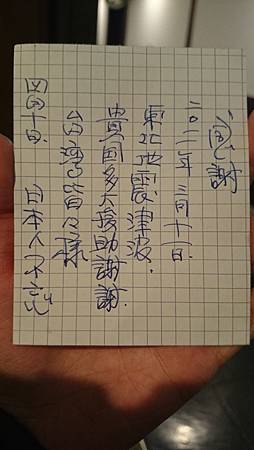 感謝
二〇一一年三月十一日.
東北地震津波.
貴国多大援助謝謝.
台湾皆々様
四月十日. 日本人不忘